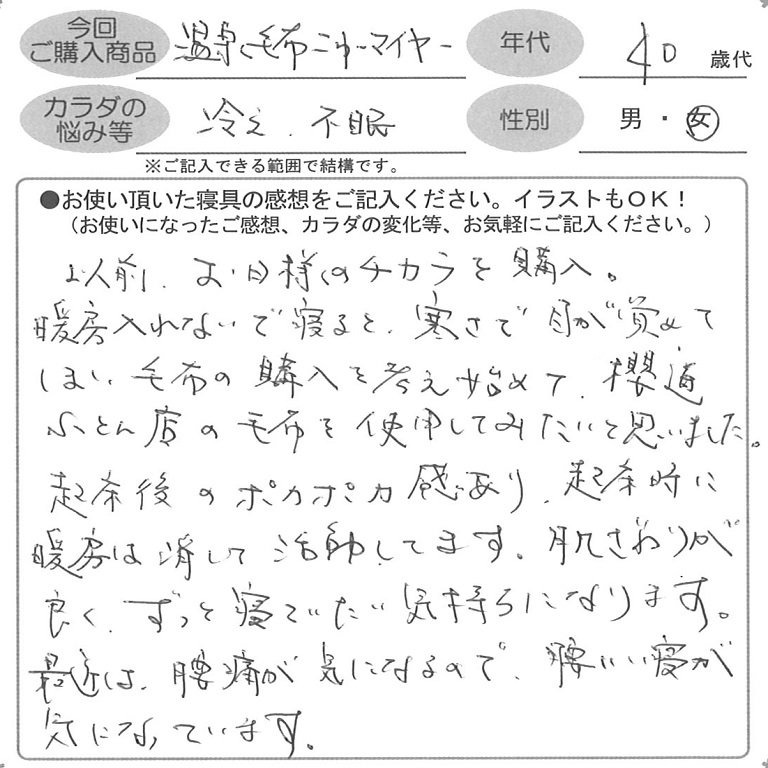 今回ご購入商品 温泉毛布ニューマイヤー 年代 40歳代
カラダの悩み等 冷え、不眠 性別 男・女
※ご記入できる範囲で結構です。
●お使い頂いた寝具の感想をご記入ください。イラストもOK！
（お使いになったご感想、カラダの変化等、お気軽にご記入ください。）
以前、お日様のチカラを購入。
暖房入れないで寝ると、寒さで目が覚めて
しまい毛布の購入を考え始めて、櫻道
ふとん店の毛布を使用してみたいと思いました。
起床後のポカポカ感あり、起床時に
暖房は消して活動してます。肌ざわりが
良く、ずっと寝ていたい気持ちになります。
最近は、腰痛が気になるので、腰いい寝が
気になっています。